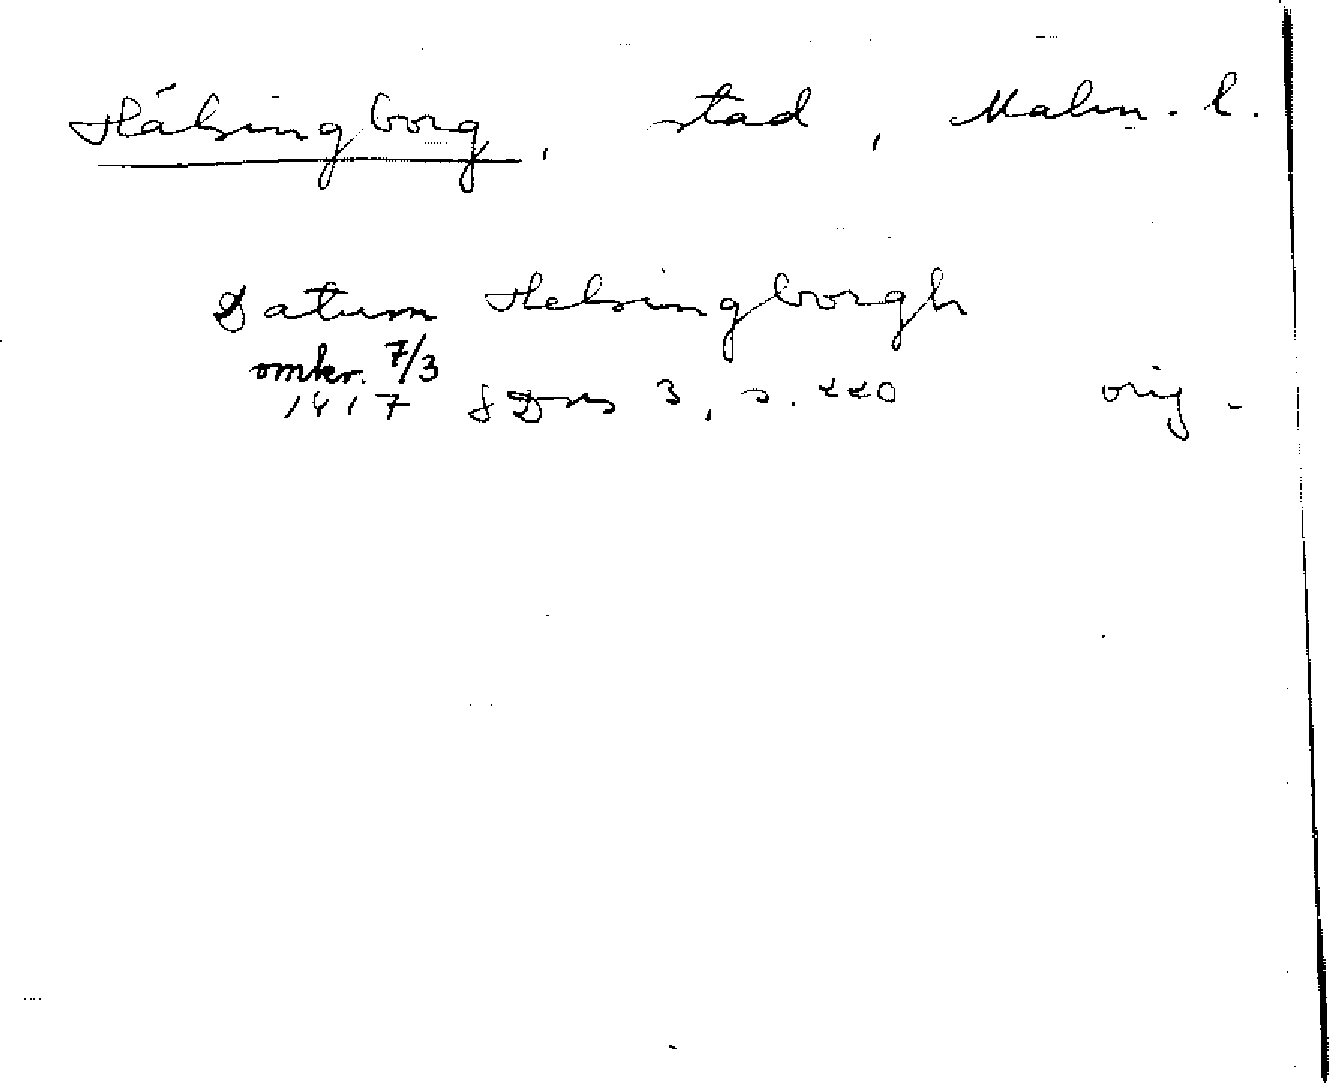 Hälsingborg, stad, Malm. l.
Datum Helsingborgh
omkr. 7/3
1417 SDns 3, s. 220 orig.